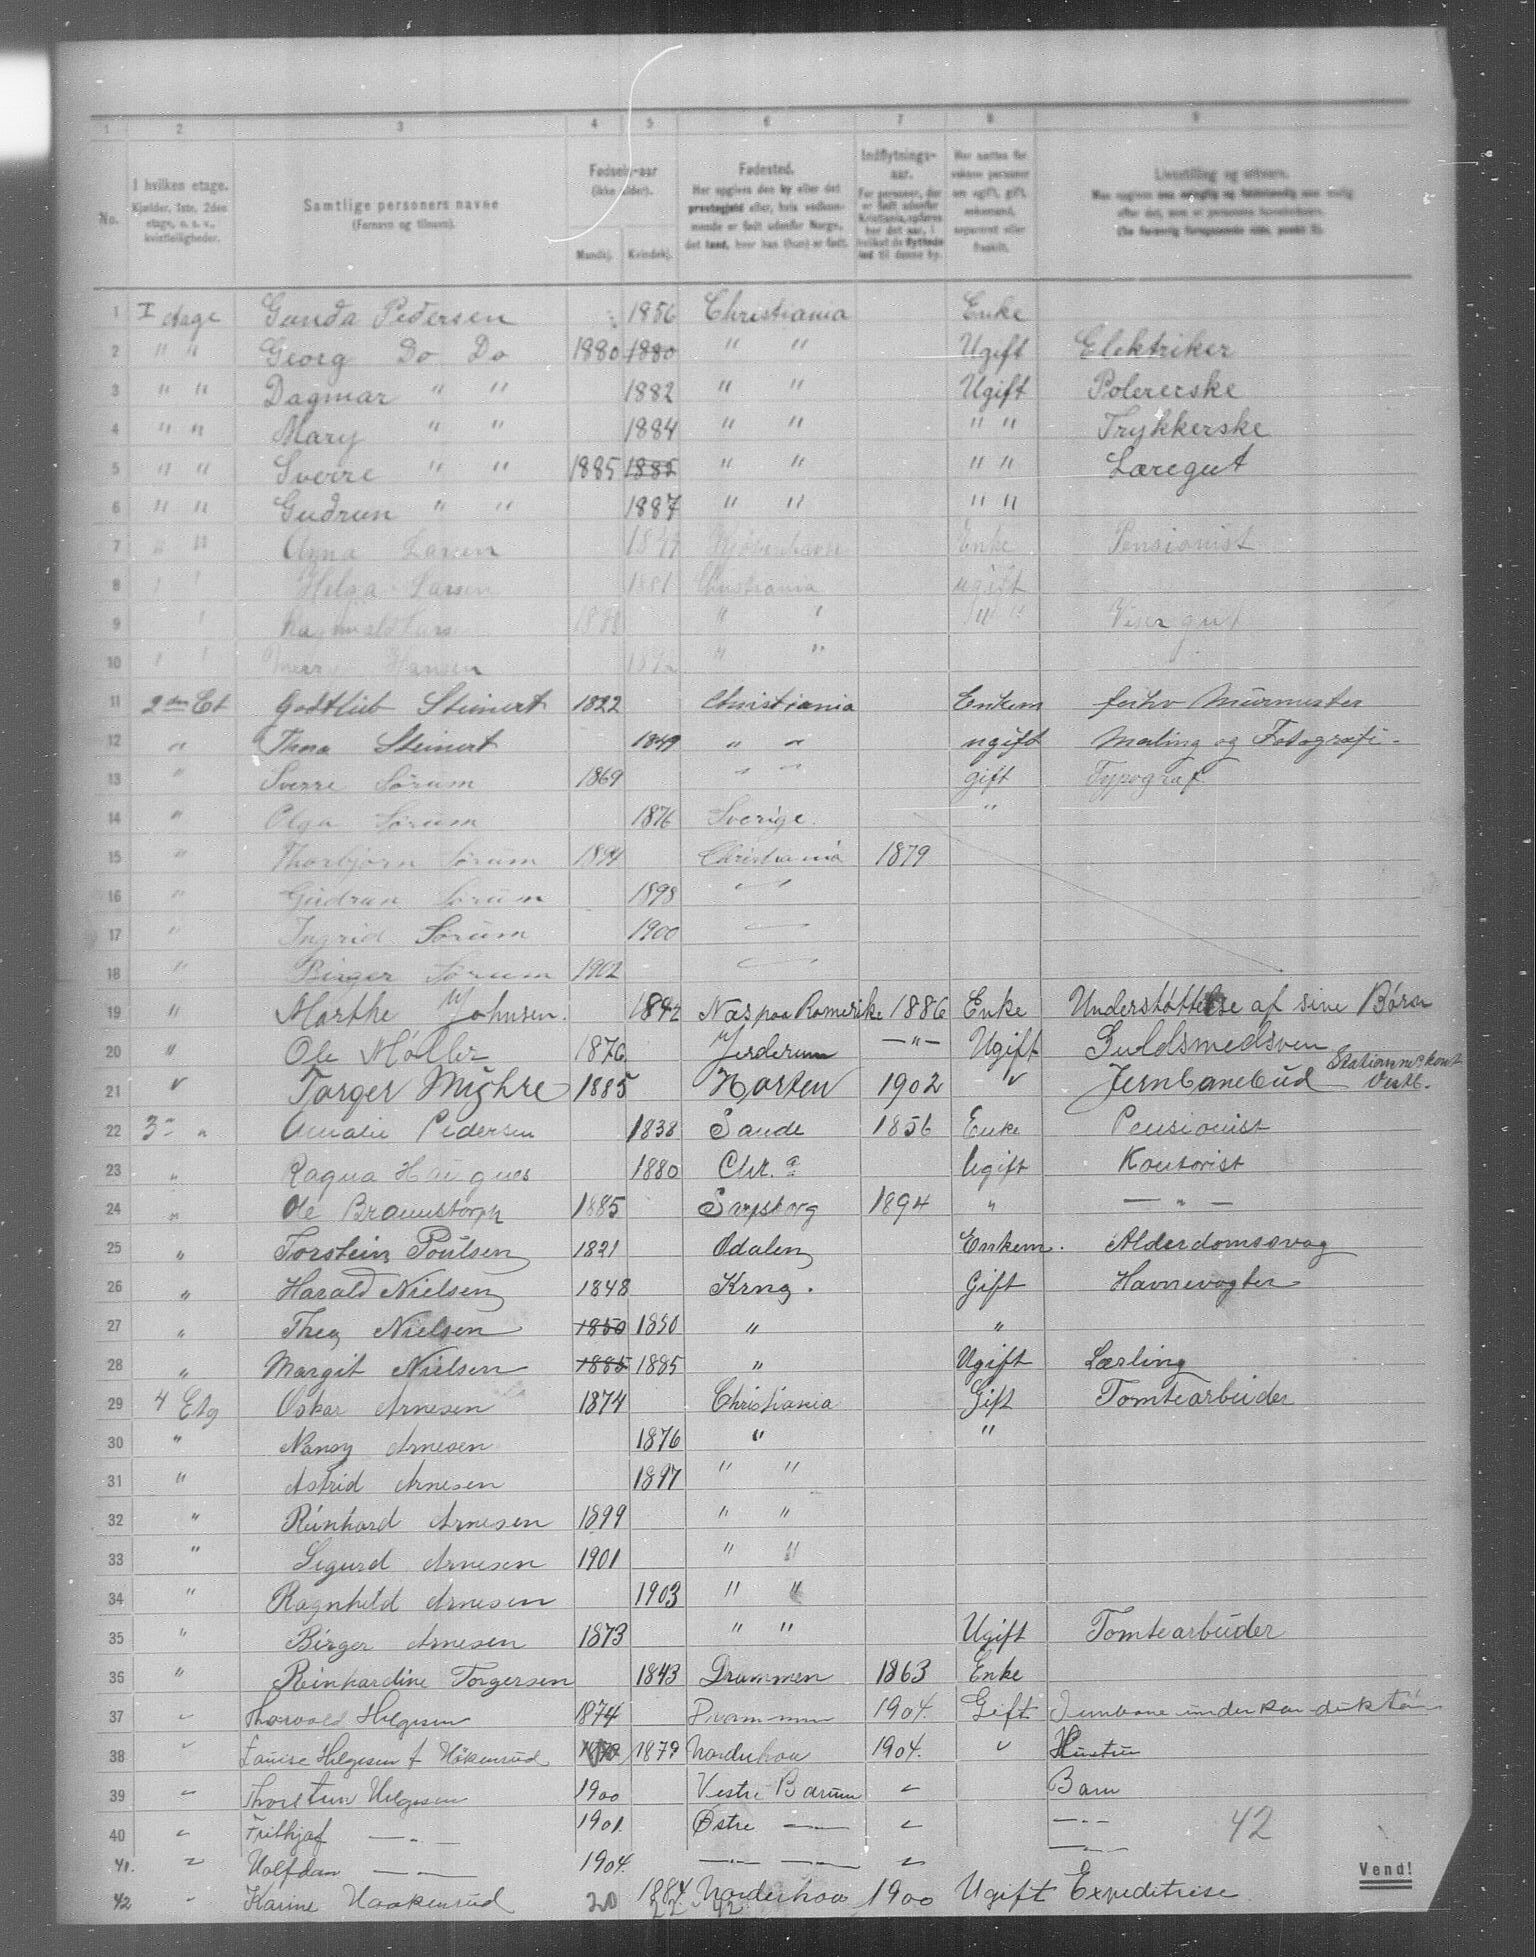 1 2 3 4 5 6 7 8 9
No. I hvilken etage. Kjælder, 1ste, 2den etage, o. s. v., kvistleiligheder. Samtlige personers navne (Fornavn og tilnavn). Fødsels-aar (ikke alder). Mandkj. Kvindekj. Fødested. Her opgives den by eller det prestegjeld eller, hvis vedkommende er født udenfor Norge, det land, hvor han (hun) er født. Indflytnings-aar. For personer, der er født udenfor Kristiania, opføres her det aar, i hvilket de flyttede ind til denne by. Livsstilling og erhverv.
1 I etage Gunda Pedersen 1856 Christiania Enke
2 " " Georg Do Do 1880 1880 " " Ugift Elektriker
3 " " Dagmar " " 1882 " " Ugift Polererske
4 " " Mary " " 1884 " " " " Trykkerske
5 " " Sverre " " 1885 1885 " " " " Læregut
6 " " Gudrun " " 1887 " " " "
7 " " Anna Larsen Enke Pensionist
8 " " Helga Larsen 1881 Christiania ugift
9 " " " " " Visergut
10 " " Hansen " "
11 2den Et Godtlieb Steinert 1822 Christiania Enkem forhv Murmester
12 " Thea Steinert 1849 " " ugift Maling og Fotografi
13 " Sverre Sørum 1869 " " gift Typograf
14 " Olga Sørum 1876 Sverige "
15 " Thorbjørn Sørum 1894 Christiania 1879
16 " Gudrun Sørum 1898 "
17 " Ingrid Sørum 1900 "
18 " Birger Sørum 1902 "
19 " Marthe Johnsen. 1842 Næs paa Romerike 1886 Enke Understøttelse af sine Børn
20 " Ole Møller 1876 Jerderum — " — Ugift Guldsmedsven
21 " Torger Myhre 1885 Horten 1902 " Jernbanebud Stationmskont Vestb.
22 3 " Amalie Pedersen 1838 Sande 1856 Enke Pensionist
23 " Ragna 1880 Chr.a Ugift Kontorist
24 " Ole Braunstorph 1885 Sarpsborg 1894 " — " —
25 " Torstein Poulsen 1821 Odalen Enkem. Alderdomssvag
26 " Harald Nielsen 1848 Krna. Gift Havnevogter
27 " Thea Nielsen 1850 1850 " "
28 " Margit Nielsen 1885 1885 " Ugift Lærling
29 4 Etg Oskar Arnesen 1874 Christiania Gift Tomtearbeider
30 " Nansy Arnesen 1876 " "
31 " Astrid Arnesen 1897 " "
32 " Reinhard Arnesen 1899 " "
33 " Sigurd Arnesen 1901 " "
34 " Ragnhild Arnesen 1903 " "
35 " Birger Arnesen 1873 " " Ugift Tomtearbeider
36 " Reinhardine Torgersen 1843 Drammen 1863 Enke
37 " Thorvald Helgesen 1874 Drammen 1904. Gift Jernbane underkonduktør
38 " Louise Helgesen f Håkenrud 1879 Norderhov 1904. " Hustru
39 " Thorstein Helgesen 1900 Vestre Bærum " Barn
40 " Frithjof — " — 1901. Østre — " — " — 42
41. " Halfdan — " — 1904. — — " — " —
Vend!
42 " Karine Haakenrud 1884 Norderhov 1900 Ugift Expeditrise
20 22 42